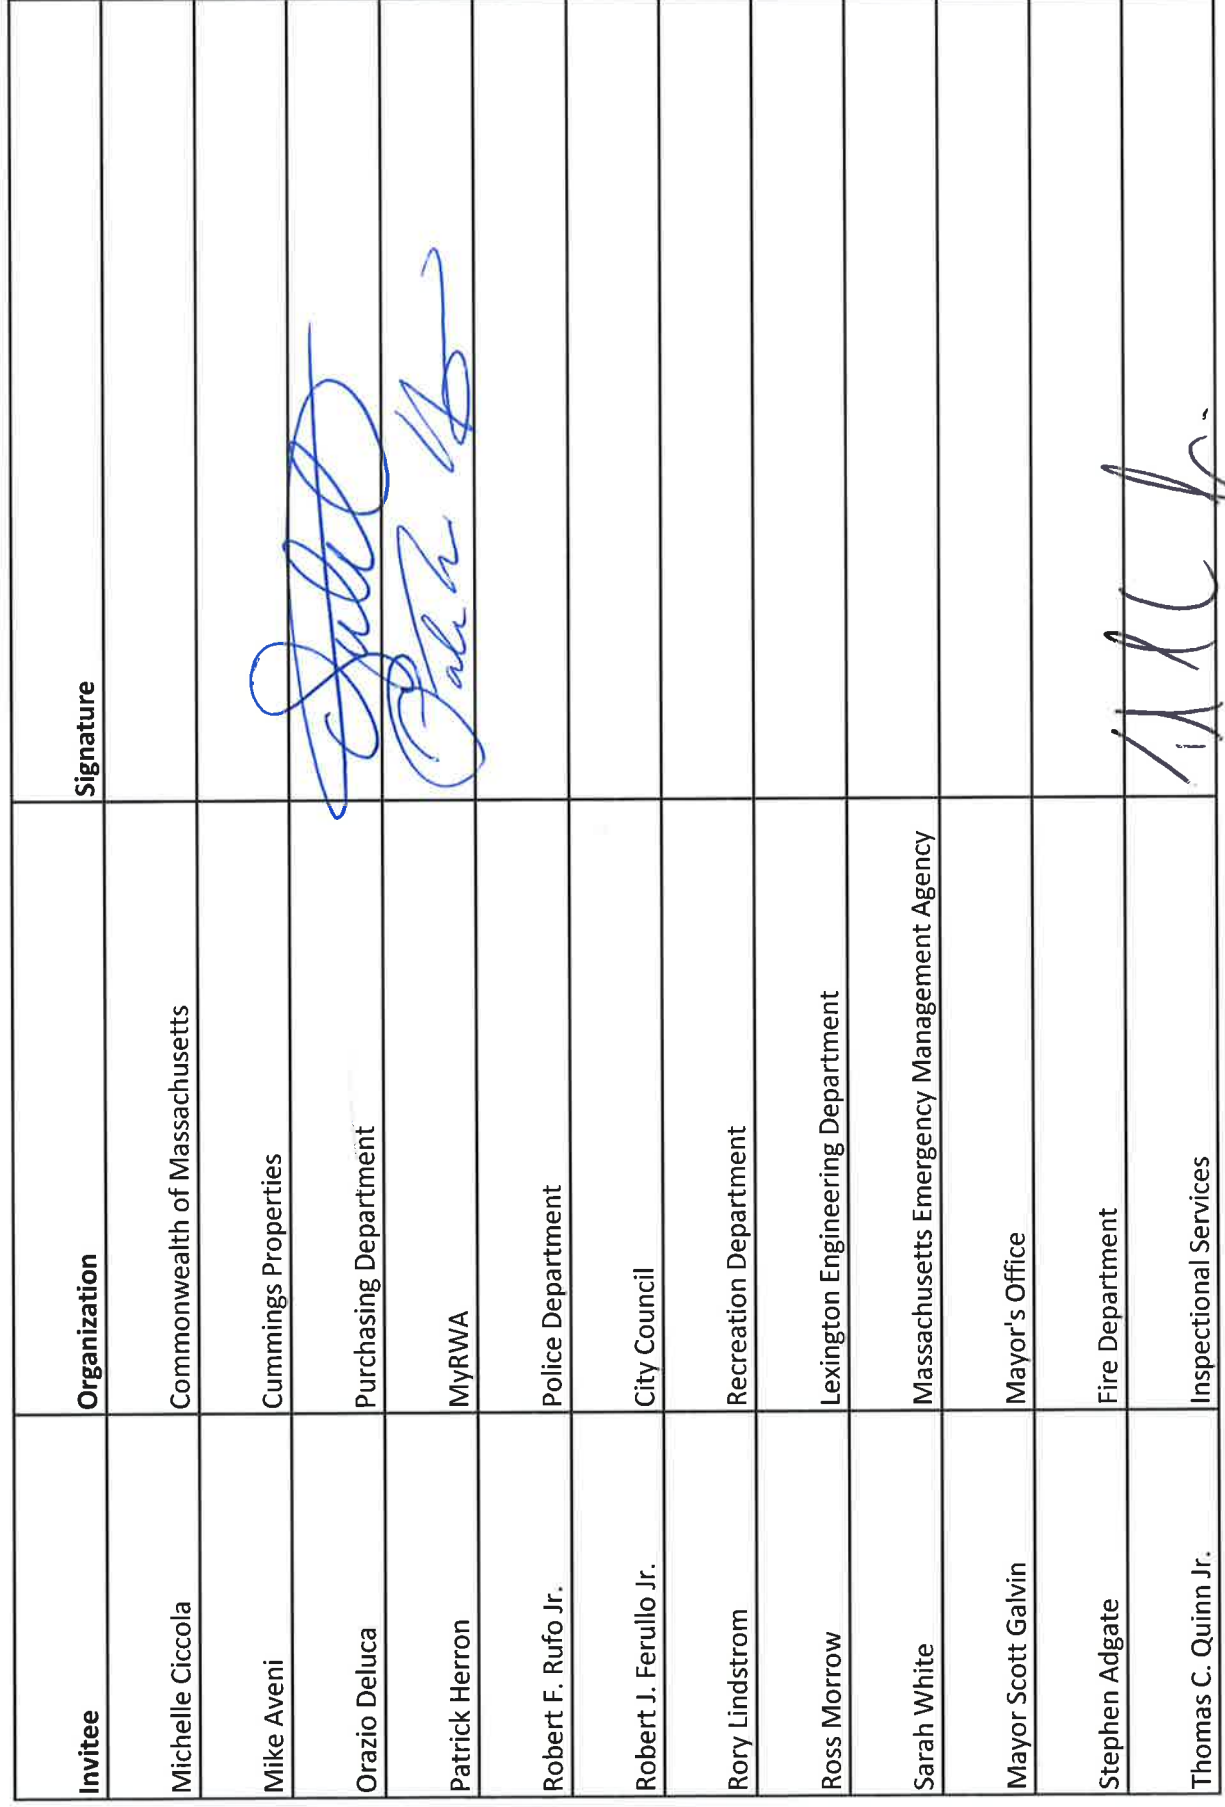 Invitee Organization Signature
Michelle Ciccola Commonwealth of Massachusetts
Mike Aveni Cummings Properties
Orazio Deluca Purchasing Department
Patrick Herron MyRWA
Robert F. Rufo Jr. Police Department
Robert J. Ferullo Jr. City Council
Rory Lindstrom Recreation Department
Ross Morrow Lexington Engineering Department
Sarah White Massachusetts Emergency Management Agency
Mayor Scott Galvin Mayor's Office
Stephen Adgate Fire Department
Thomas C. Quinn Jr. Inspectional Services